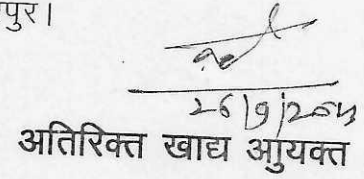 पुर।
26/9/2014
अतिरिक्त खाद्य आुयक्त